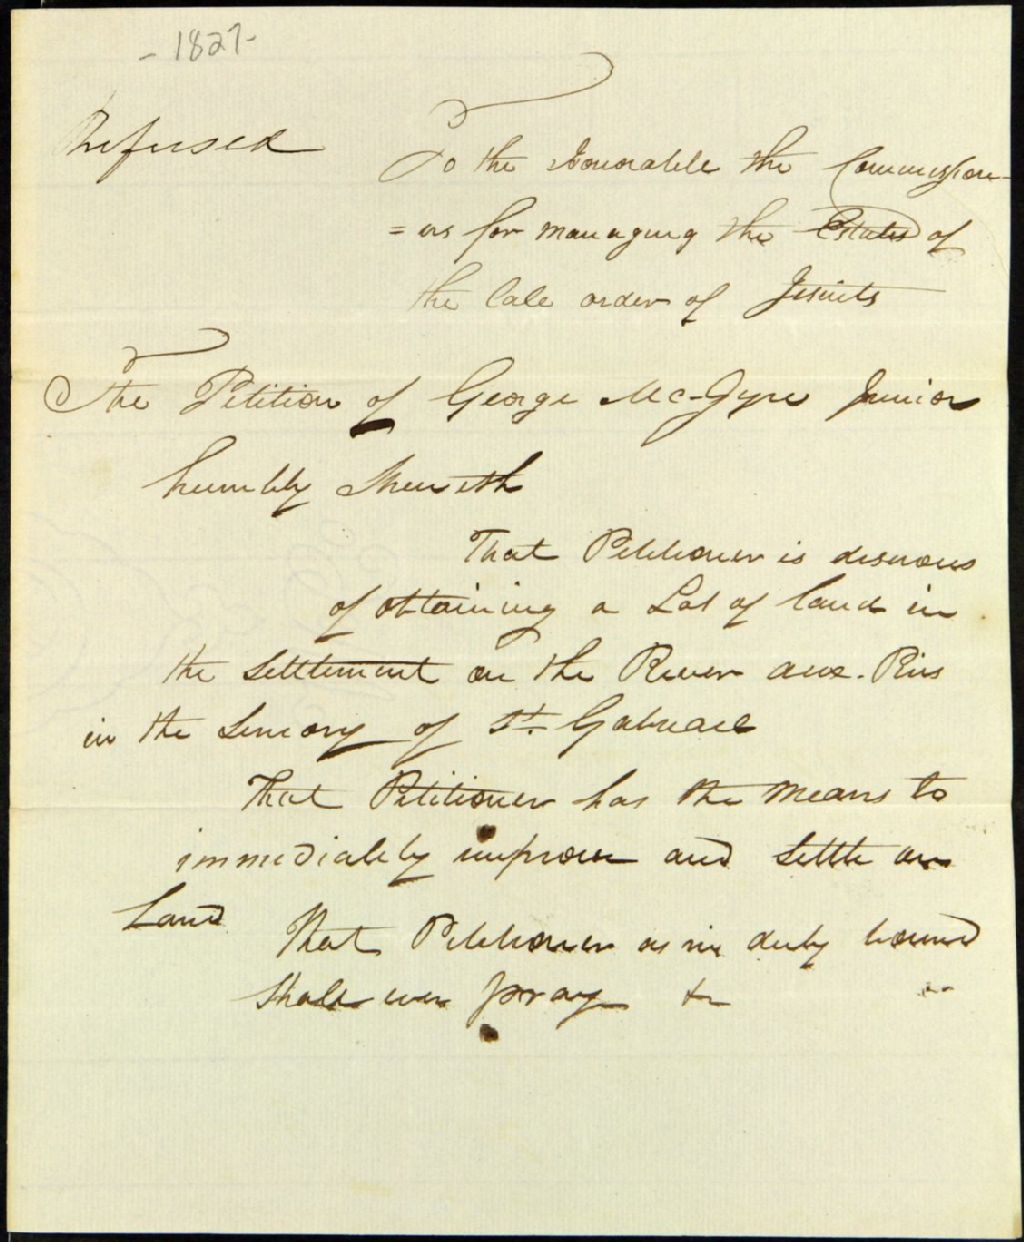 - 1827 -
Refused
To the Honorable the Commission-
=ers for managing the Estates of
the late order of Jesuits
The Petition of George Mc-Gyre Junior
humbly Sheweth
That Petitioner is desirous
of obtaining a Lot of land in
the Settlement on the River aux Pins
in the Seniory of St. Gabriael
That Petitioner has the means to
immediately improve and Settle
Land
That Petitioner as in duty bound
Shall ever pray &c